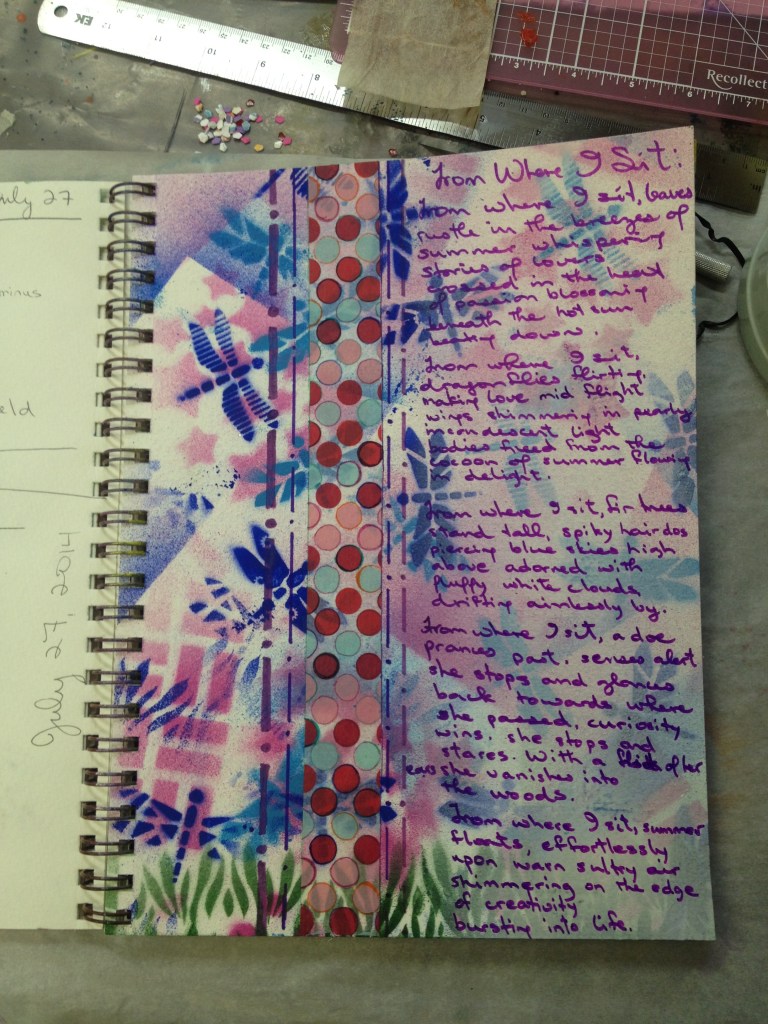 EK
Recollect
July 27
minus
eld
July 27, 2014
From Where I Sit:
From where I sit, leaves
rustle in the breezes of
summer whispering
stories of lovers
in the heart
of passion blossoming
beneath the hot sun
beating down.
From where I sit,
dragonflies flirting,
making love mid flight
wings shimmering in pearly
light
bodies freed from the
cocoon of summer flowing
in delight.
From where I sit, fir trees
stand tall, spiky hairdos
piercing blue skies high
above adorned with
fluffy white clouds
drifting aimlessly by.
From where I sit, a doe
prances past, senses alert
she stops and glances
back towards where
she passed, curiosity
wins, she stops and
stares. With a flick of her
ears she vanishes into
the woods.
From where I sit, summer
floats, effortlessly
upon warm sultry air
shimmering on the edge
of creativity
bursting into life.